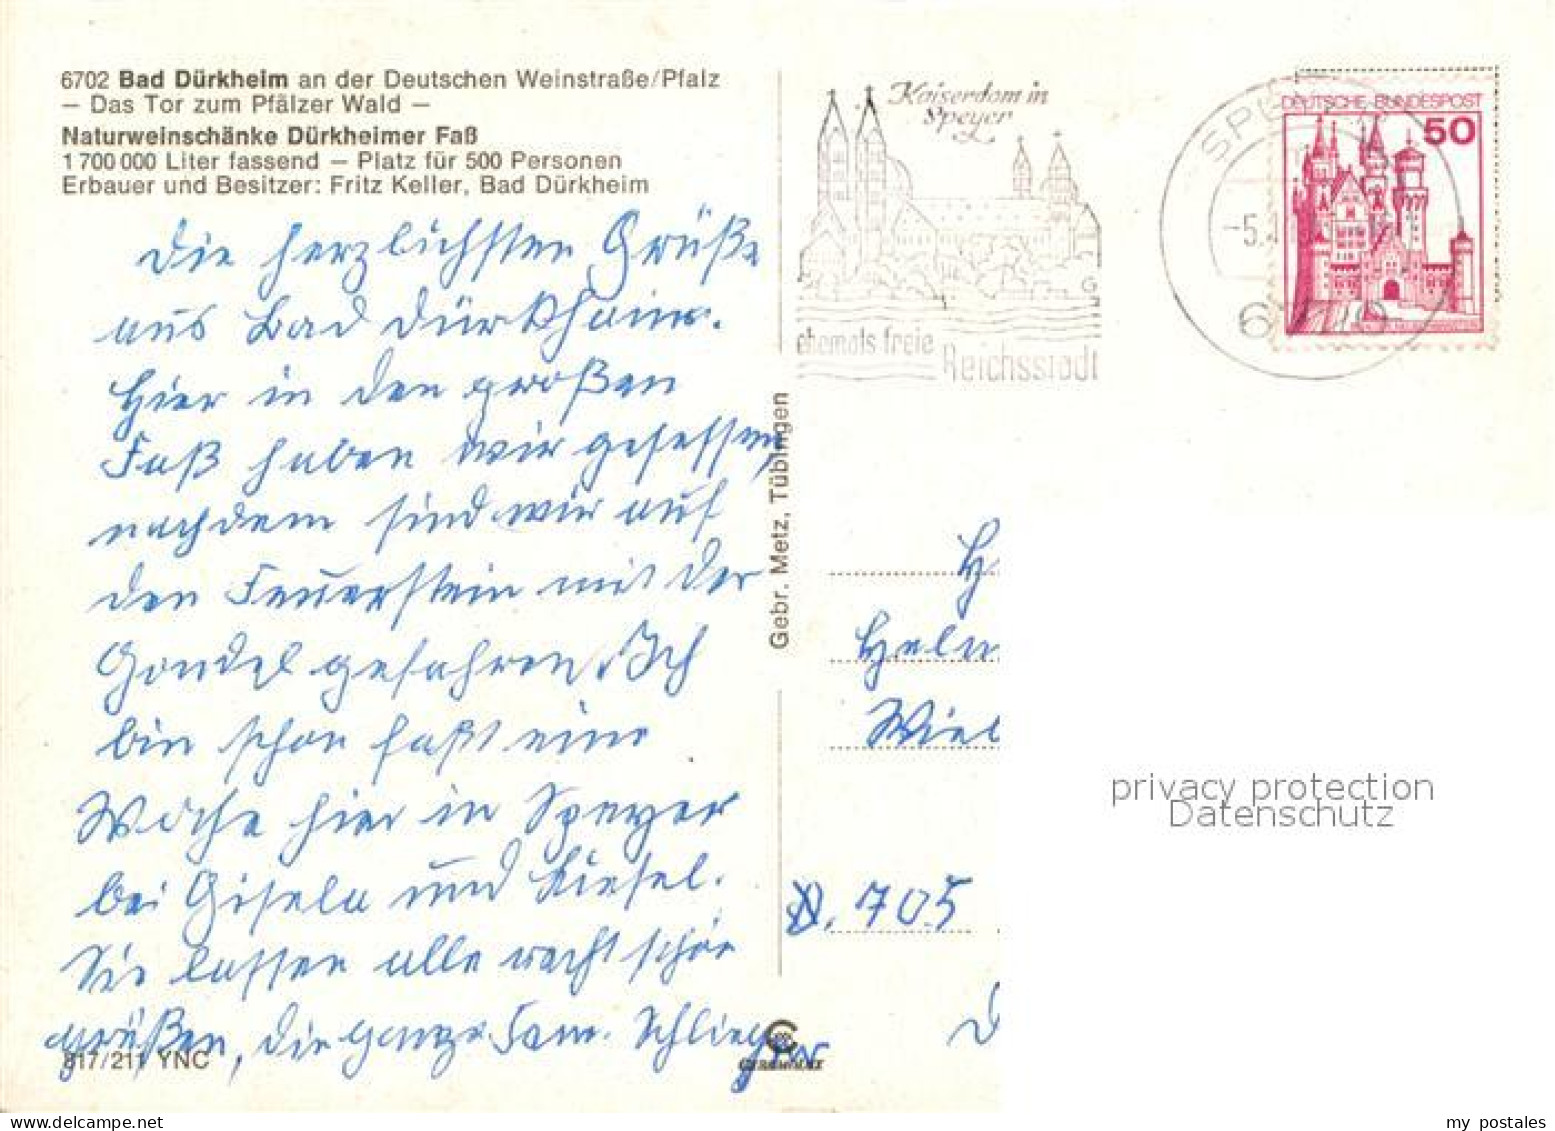 6702 Bad Dürkheim an der Deutschen Weinstraße/Pfalz
– Das Tor zum Pfälzer Wald –
Naturweinschänke Dürkheimer Faß
1 700 000 Liter fassend – Platz für 500 Personen
Erbauer und Besitzer: Fritz Keller, Bad Dürkheim
Die herzlichsten Grüße
aus Bad Dürkheim.
Hier in den großen
Faß haben wir gesessen,
nachdem sind wir auf
den Feuerstein mit der
Gondel gefahren. Ich
bin schon faßt eine
Woche hier in Speyer
bei Gisela und
Sie lassen alle recht schön
grüßen, die ganze Fam. Schlieger
817/211 YNC
Gebr. Metz, Tübingen
Kaiserdom in
Speyer
ehemals freie
Reichsstadt
-5.
DEUTSCHE BUNDESPOST
50
H
Heln
Wiel
D. 705
D
privacy protection
Datenschutz
my postales